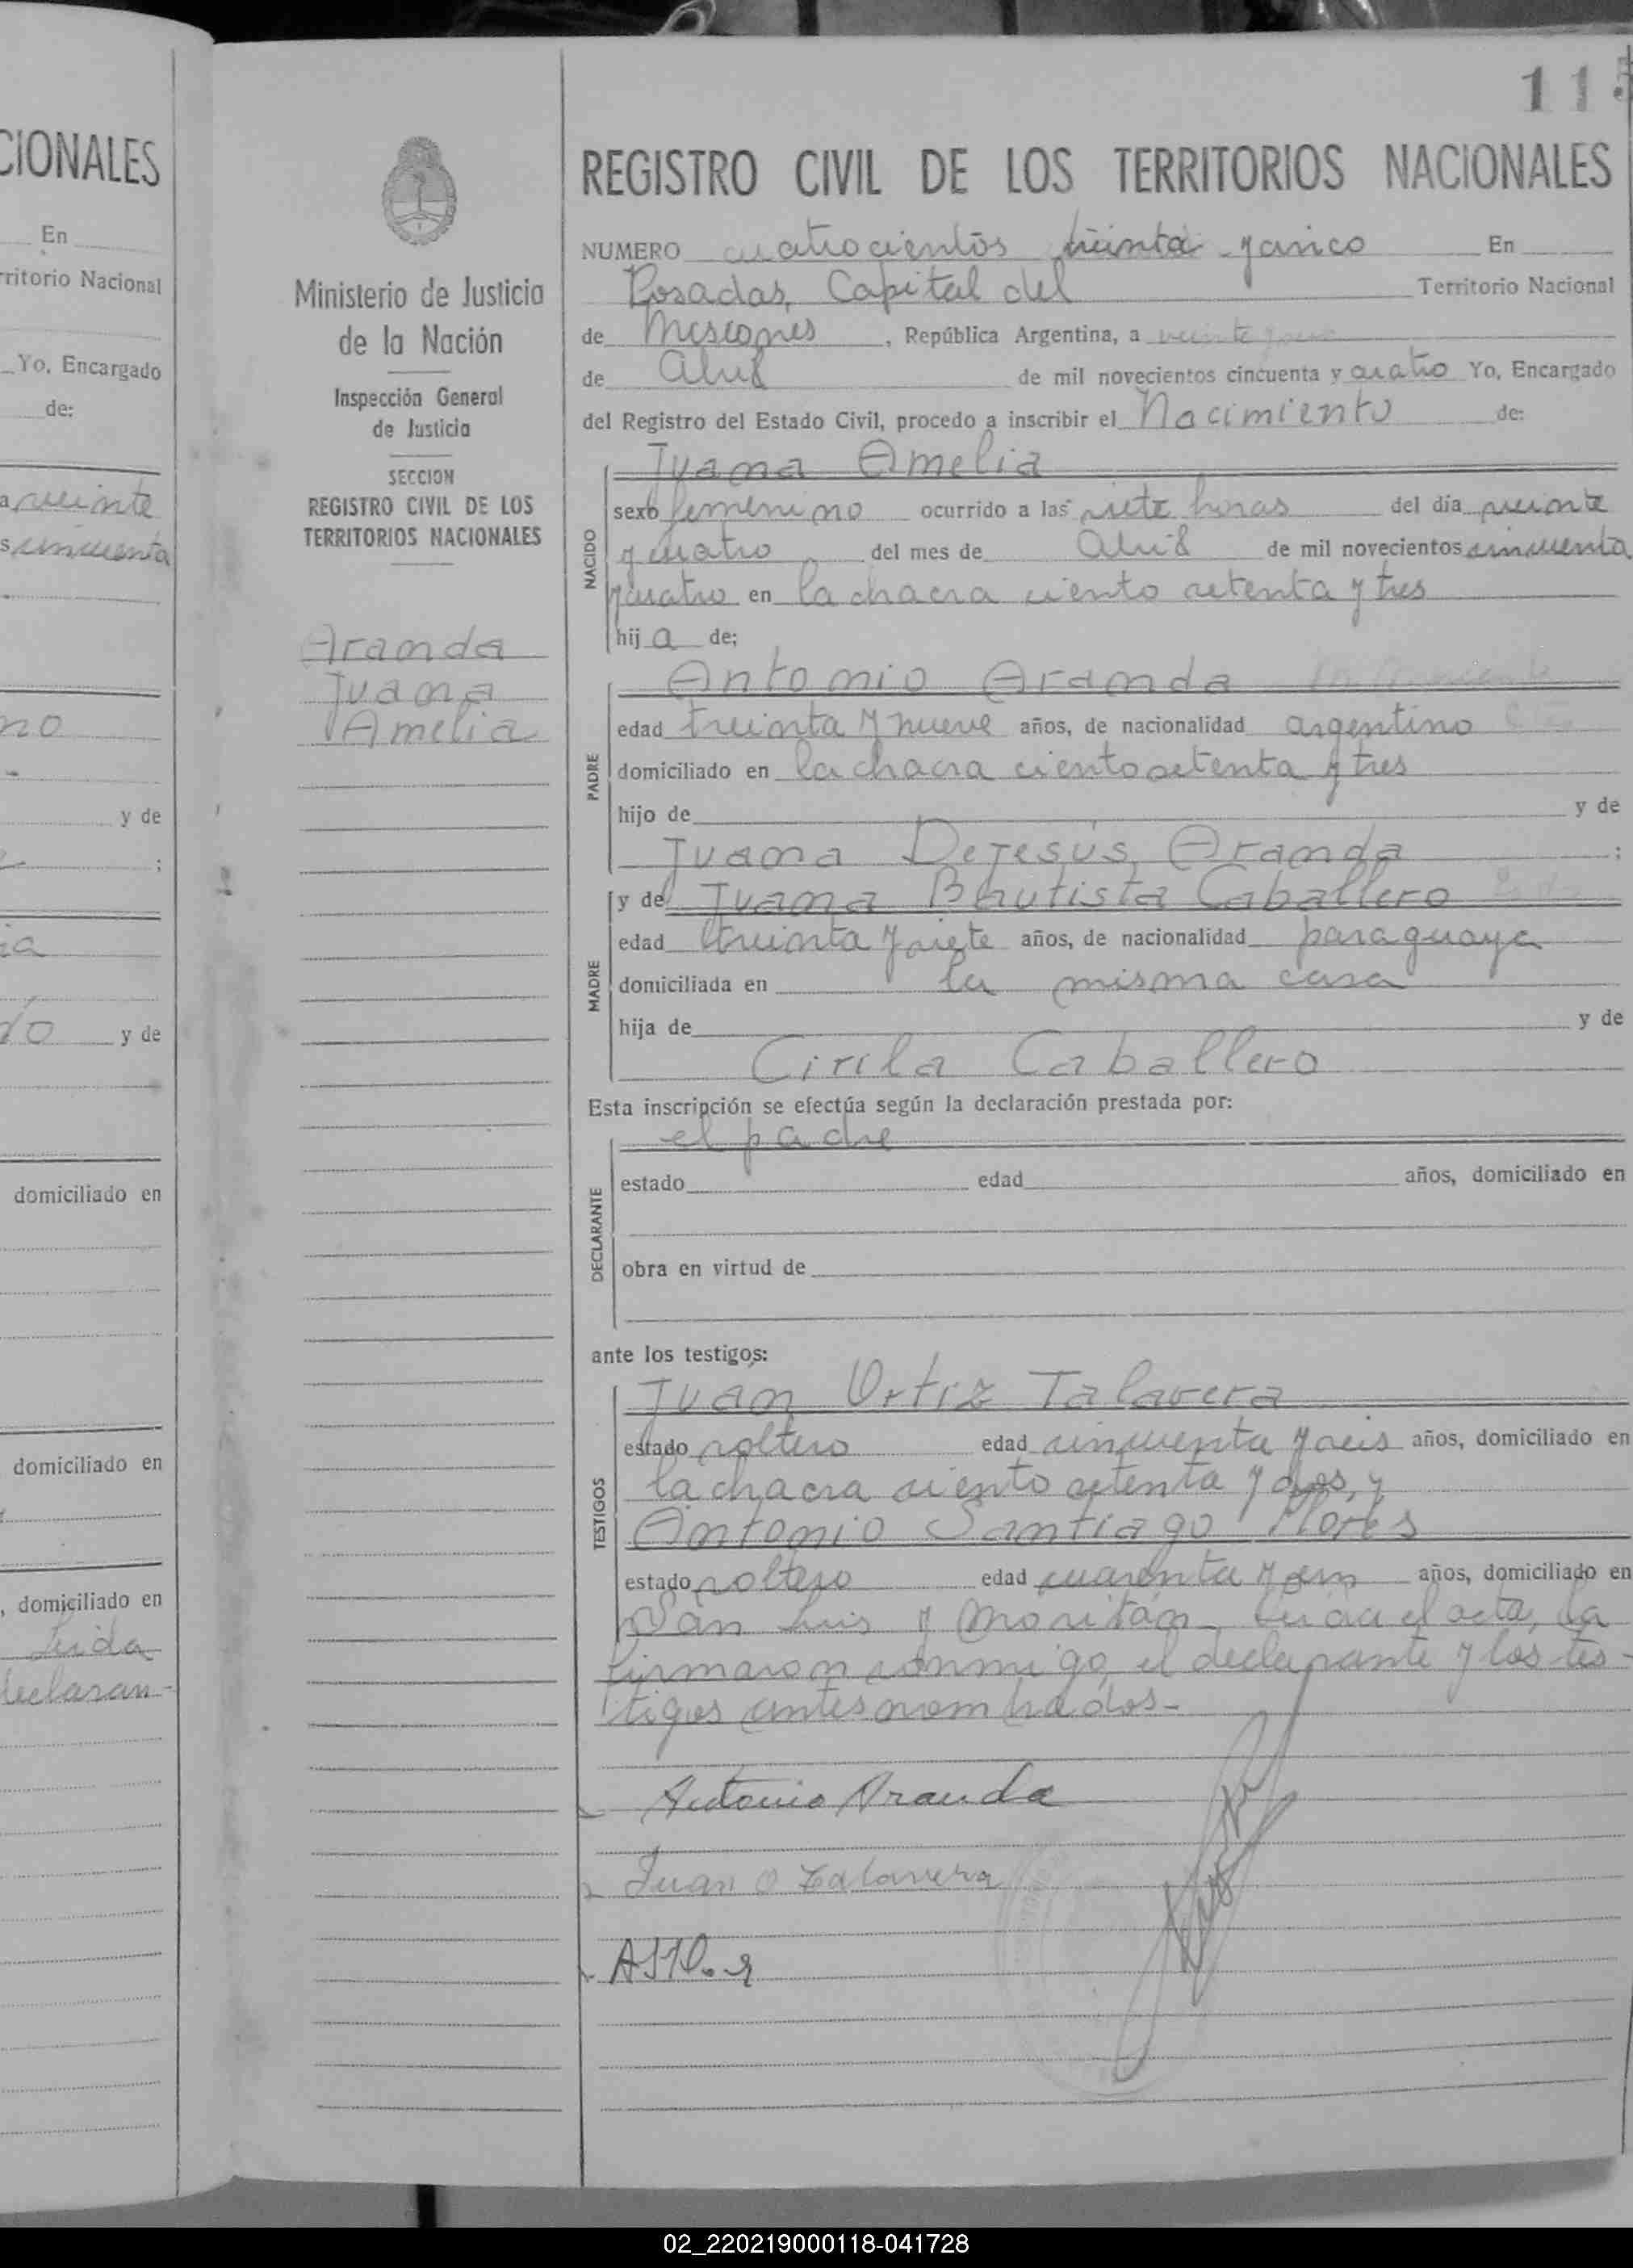 CIONALES
En
rritorio Nacional
Yo, Encargado
de:
a veinte
s cincuenta
no
y de
;
ia
do y de
domiciliado en
domiciliado en
, domiciliado en
Leida
declaran-
Ministerio de Justicia
de la Nación
Inspección General
de Justicia
SECCION
REGISTRO CIVIL DE LOS
TERRITORIOS NACIONALES
Aranda
Juana
Amelia
115
REGISTRO CIVIL DE LOS TERRITORIOS NACIONALES
NUMERO cuatrocientos treinta y cinco En
Posadas, Capital del Territorio Nacional
de Misiones, República Argentina, a veinte y
de Abril de mil novecientos cincuenta y cuatro Yo, Encargado
del Registro del Estado Civil, procedo a inscribir el Nacimiento de:
Juana Amelia
NACIDO
sexo femenino ocurrido a las siete horas del día veinte
y cuatro del mes de Abril de mil novecientos cincuenta
y cuatro en la chacra ciento setenta y tres
hija de;
PADRE
Antonio Aranda
edad treinta y nueve años, de nacionalidad argentino
domiciliado en la chacra ciento setenta y tres
hijo de y de
Juana DeJesús Aranda ;
MADRE
y de Juana Bautista Caballero
edad treinta y siete años, de nacionalidad paraguaya
domiciliada en la misma casa
hija de y de
Cirila Caballero
Esta inscripción se efectúa según la declaración prestada por:
DECLARANTE
el padre
estado edad años, domiciliado en
obra en virtud de
ante los testigos:
TESTIGOS
Juan Ortiz Talavera
estado soltero edad cincuenta y seis años, domiciliado en
la chacra ciento setenta y dos, y
Antonio Santiago Flores
estado soltero edad cuarenta y años, domiciliado en
San Luis y Moritán. Leida el acta, la
firmaron conmigo, el declarante y los tes-
tigos antes nombrados-
Antonio Aranda
Juan O Talavera
02_220219000118-041728